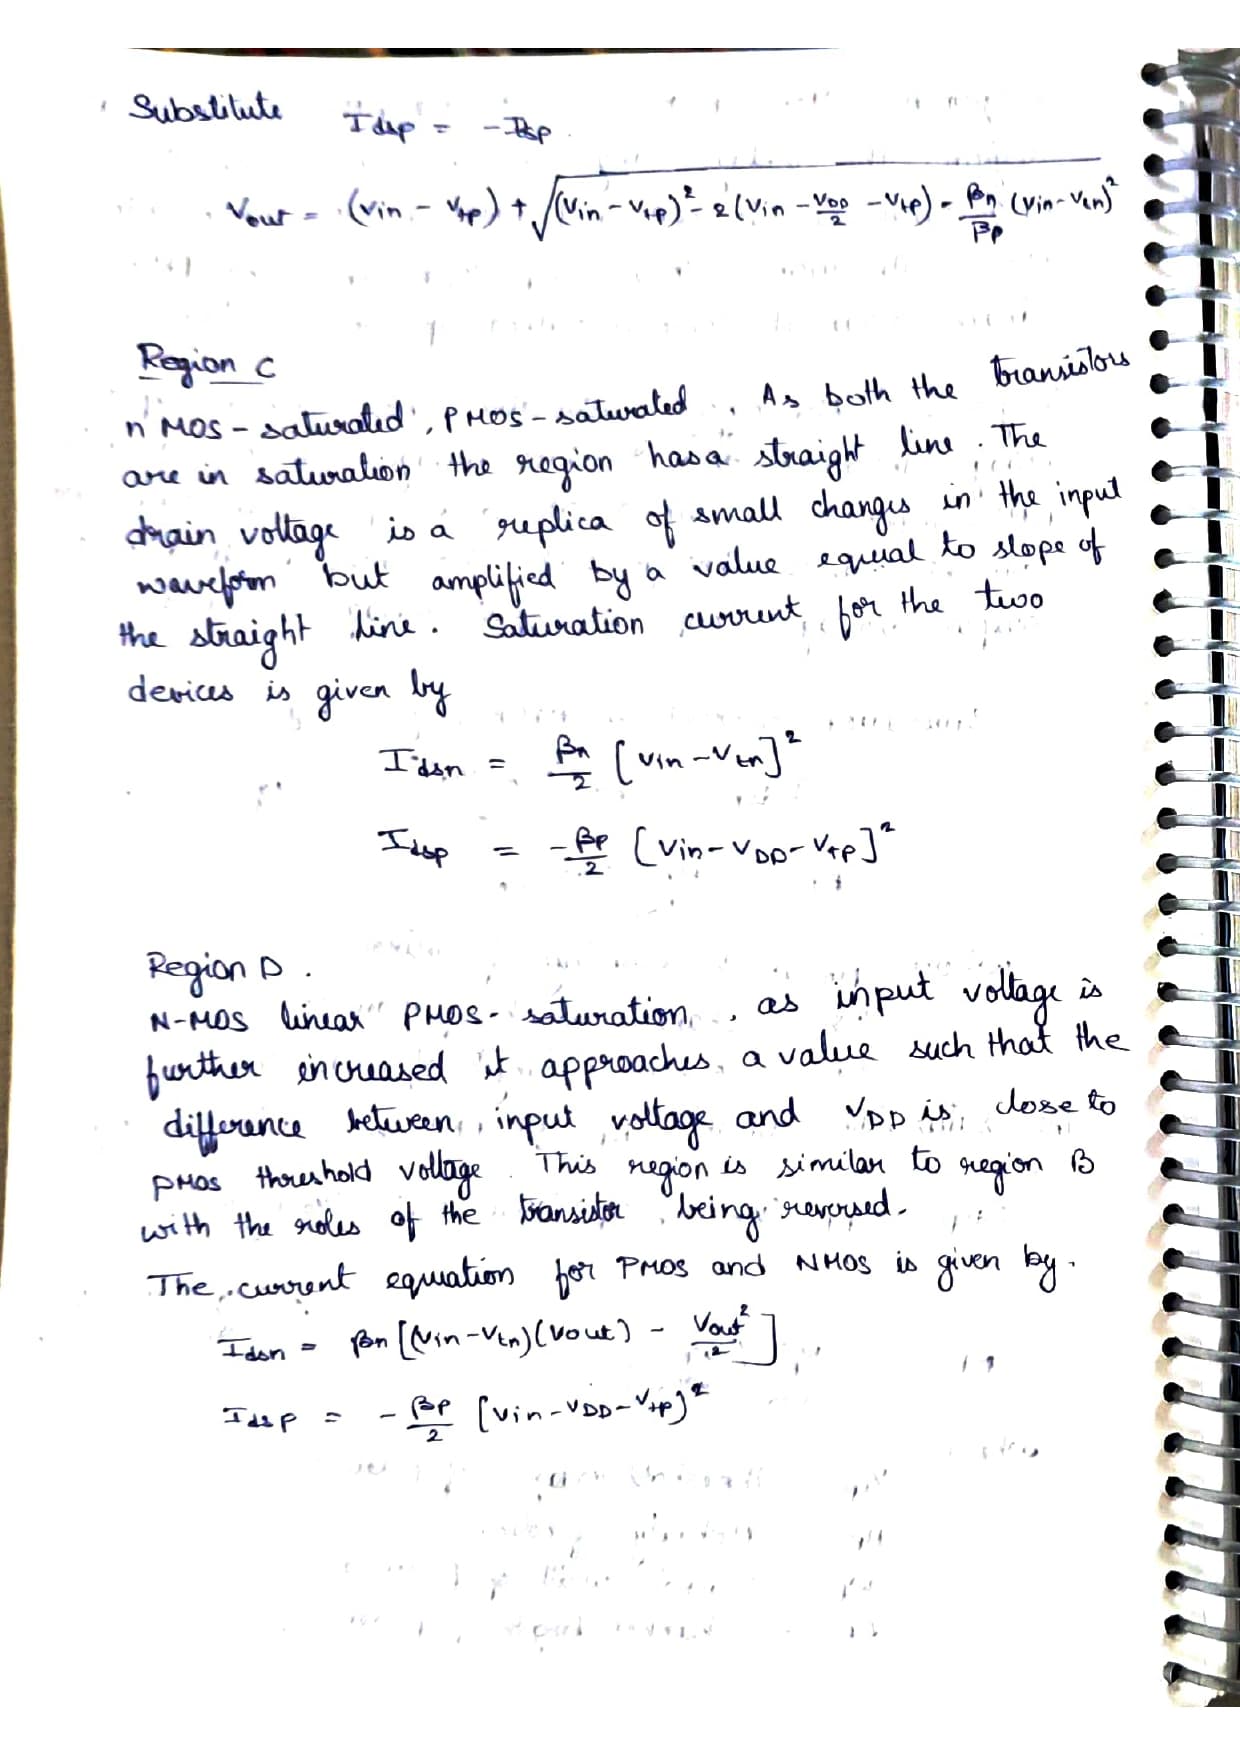 Substitute Idsp = -Isp.
Vout = (Vin - Vtp) + √(Vin - Vtp)² - 2(Vin - VDD/2 - Vtp) - βn/βp (Vin - Vtn)²
Region C
n MOS - saturated, PMOS - saturated. As both the transistors
are in saturation the region has a straight line. The
drain voltage is a replica of small changes in the input
waveform but amplified by a value equal to slope of
the straight line. Saturation current for the two
devices is given by
Idsn = βn/2 [Vin - Vtn]²
Idsp = -βp/2 [Vin - VDD - Vtp]²
Region D.
N-MOS linear PMOS - saturation, as input voltage is
further increased it approaches a value such that the
difference between input voltage and VDD is close to
PMOS threshold voltage. This region is similar to region B
with the roles of the transistor being reversed.
The current equation for PMOS and NMOS is given by.
Idsn = βn [(Vin - Vtn)(Vout) - Vout²/2]
Idsp = - βp/2 [Vin - VDD - Vtp]²